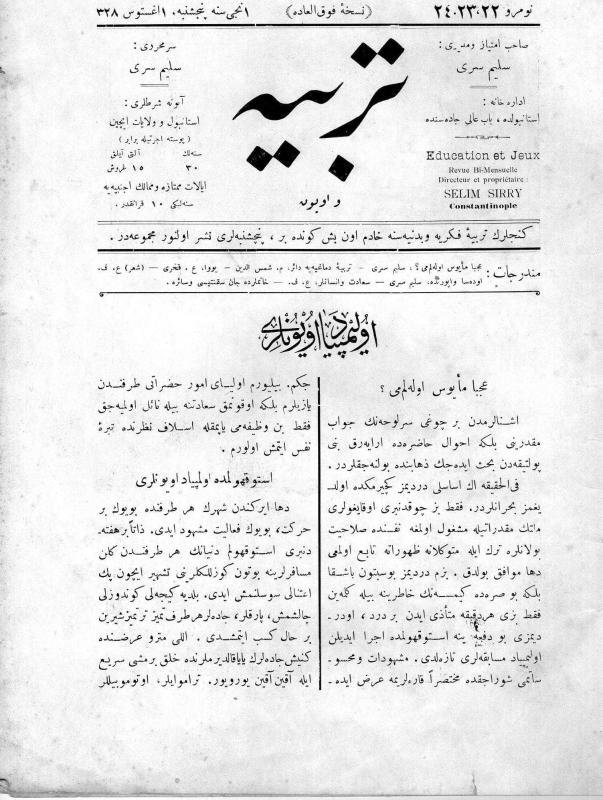 نومرو ٢٢،٢٣،٢٤
(نسخۀ فوق العاده)
١ نجی سنه پنجشنبه، ١ اغستوس ٣٢٨
صاحب امتیاز ومدیری:
سلیم سری
اداره خانه:
استانبولده، باب عالی جاده‌سنده
Education et Jeux
Revue Bi-Mensuelle
Directeur et propriétaire:
SELIM SIRRY
Constantinople
تربیه
و اویون
سرمحرری:
سلیم سری
آبونه شرطلری:
استانبول و ولایات ایچین
(پوسته اجرتیله برابر)
سنه‌لك آلتی آیلق
٣٠ ١٥ غروش
ایالات ممتازه وممالك اجنبیه‌یه
سنه‌لکی ١٠ فرانقدر.
کنجلرك تربیۀ فکریه وبدنیه‌سنه خادم اون بش کونده بر، پنجشنبه‌لری نشر اولنور مجموعه‌در.
مندرجات:
عجبا مأیوس اوله‌لم‌می؟، سلیم سری — تربیۀ دماغیه‌یه دائر، م. شمس الدین — یووا، ع. فخری — (شعر) ع. ف.
اوده‌سا واپورنده، سلیم سری — سعادت وانسانلر، ع. ف. — خانملرده جان سقنتیسی وسائره.
اولیمپیاد اویونلری
عجبا مأیوس اوله‌لم‌می؟
اشنالرمدن بر چوغی سرلوحه‌نك جواب
مقدرینی بلکه احوال حاضره‌ده ارایه‌رق بنی
پولتیقه‌دن بحث ایده‌جك ذهابنده بولنه‌جقلردر.
فی‌الحقیقه اك اساسلی دردیمز کچیرمکده اولد-
یغمز بحرانلردر. فقط بز چوقدنبری اوقایغولری
ملتك مقدراتیله مشغول اولمغه نفسنده صلاحیت
بولانلره ترك ایله متوکلانه ظهوراته تابع اولمی
دها موافق بولدق. بزم دردیمز بوسبتون باشقا
بلکه بو صره‌ده کیمسه‌نك خاطرینه بیله کله‌ین
فقط بزی هردقیقه متأذی ایدن بر درد، اودر-
دیمزی بو دفعه ینه استوقهولمده اجرا ایدیلن
اولیمپیاد مسابقه‌لری تازه‌لدی. مشهودات ومحسو-
ساتمی شوراجقده مختصراً قارءلریمه عرض ایده-
جکم. بیلیورم اولیای امور حضراتی طرفندن
یازیلرم بلکه اوقونمق سعادتنه بیله نائل اولمیه‌جق
فقط بن وظیفه‌می یاپمقله اسلاف نظرنده تبرۀ
نفس ایتمش اولورم.
استوقهولمده اولمپیاد اویونلری
دها ایرکندن شهرك هر طرفنده بویوك بر
حرکت، بویوك فعالیت مشهود ایدی. ذاتاً برهفته-
دنبری استوقهولم دنیانك هر طرفندن کلن
مسافرلرینه بوتون کوزللکلرینی تشهیر ایچون پك
اعتنالی سوسلنمش ایدی. بلدیه کیجه‌لی کوندوزلی
چالشمش، پارقلر، جاده‌لرهرطرف تمیز ترتمیزشیرین
بر حال کسب ایتمشدی. اللی مترو عرضنده
کنیش جاده‌لرك یایاقالدیرملرنده خلق برمشی سریع
ایله آقین آقین یورویور. تراموایلر، اوتوموبیللر